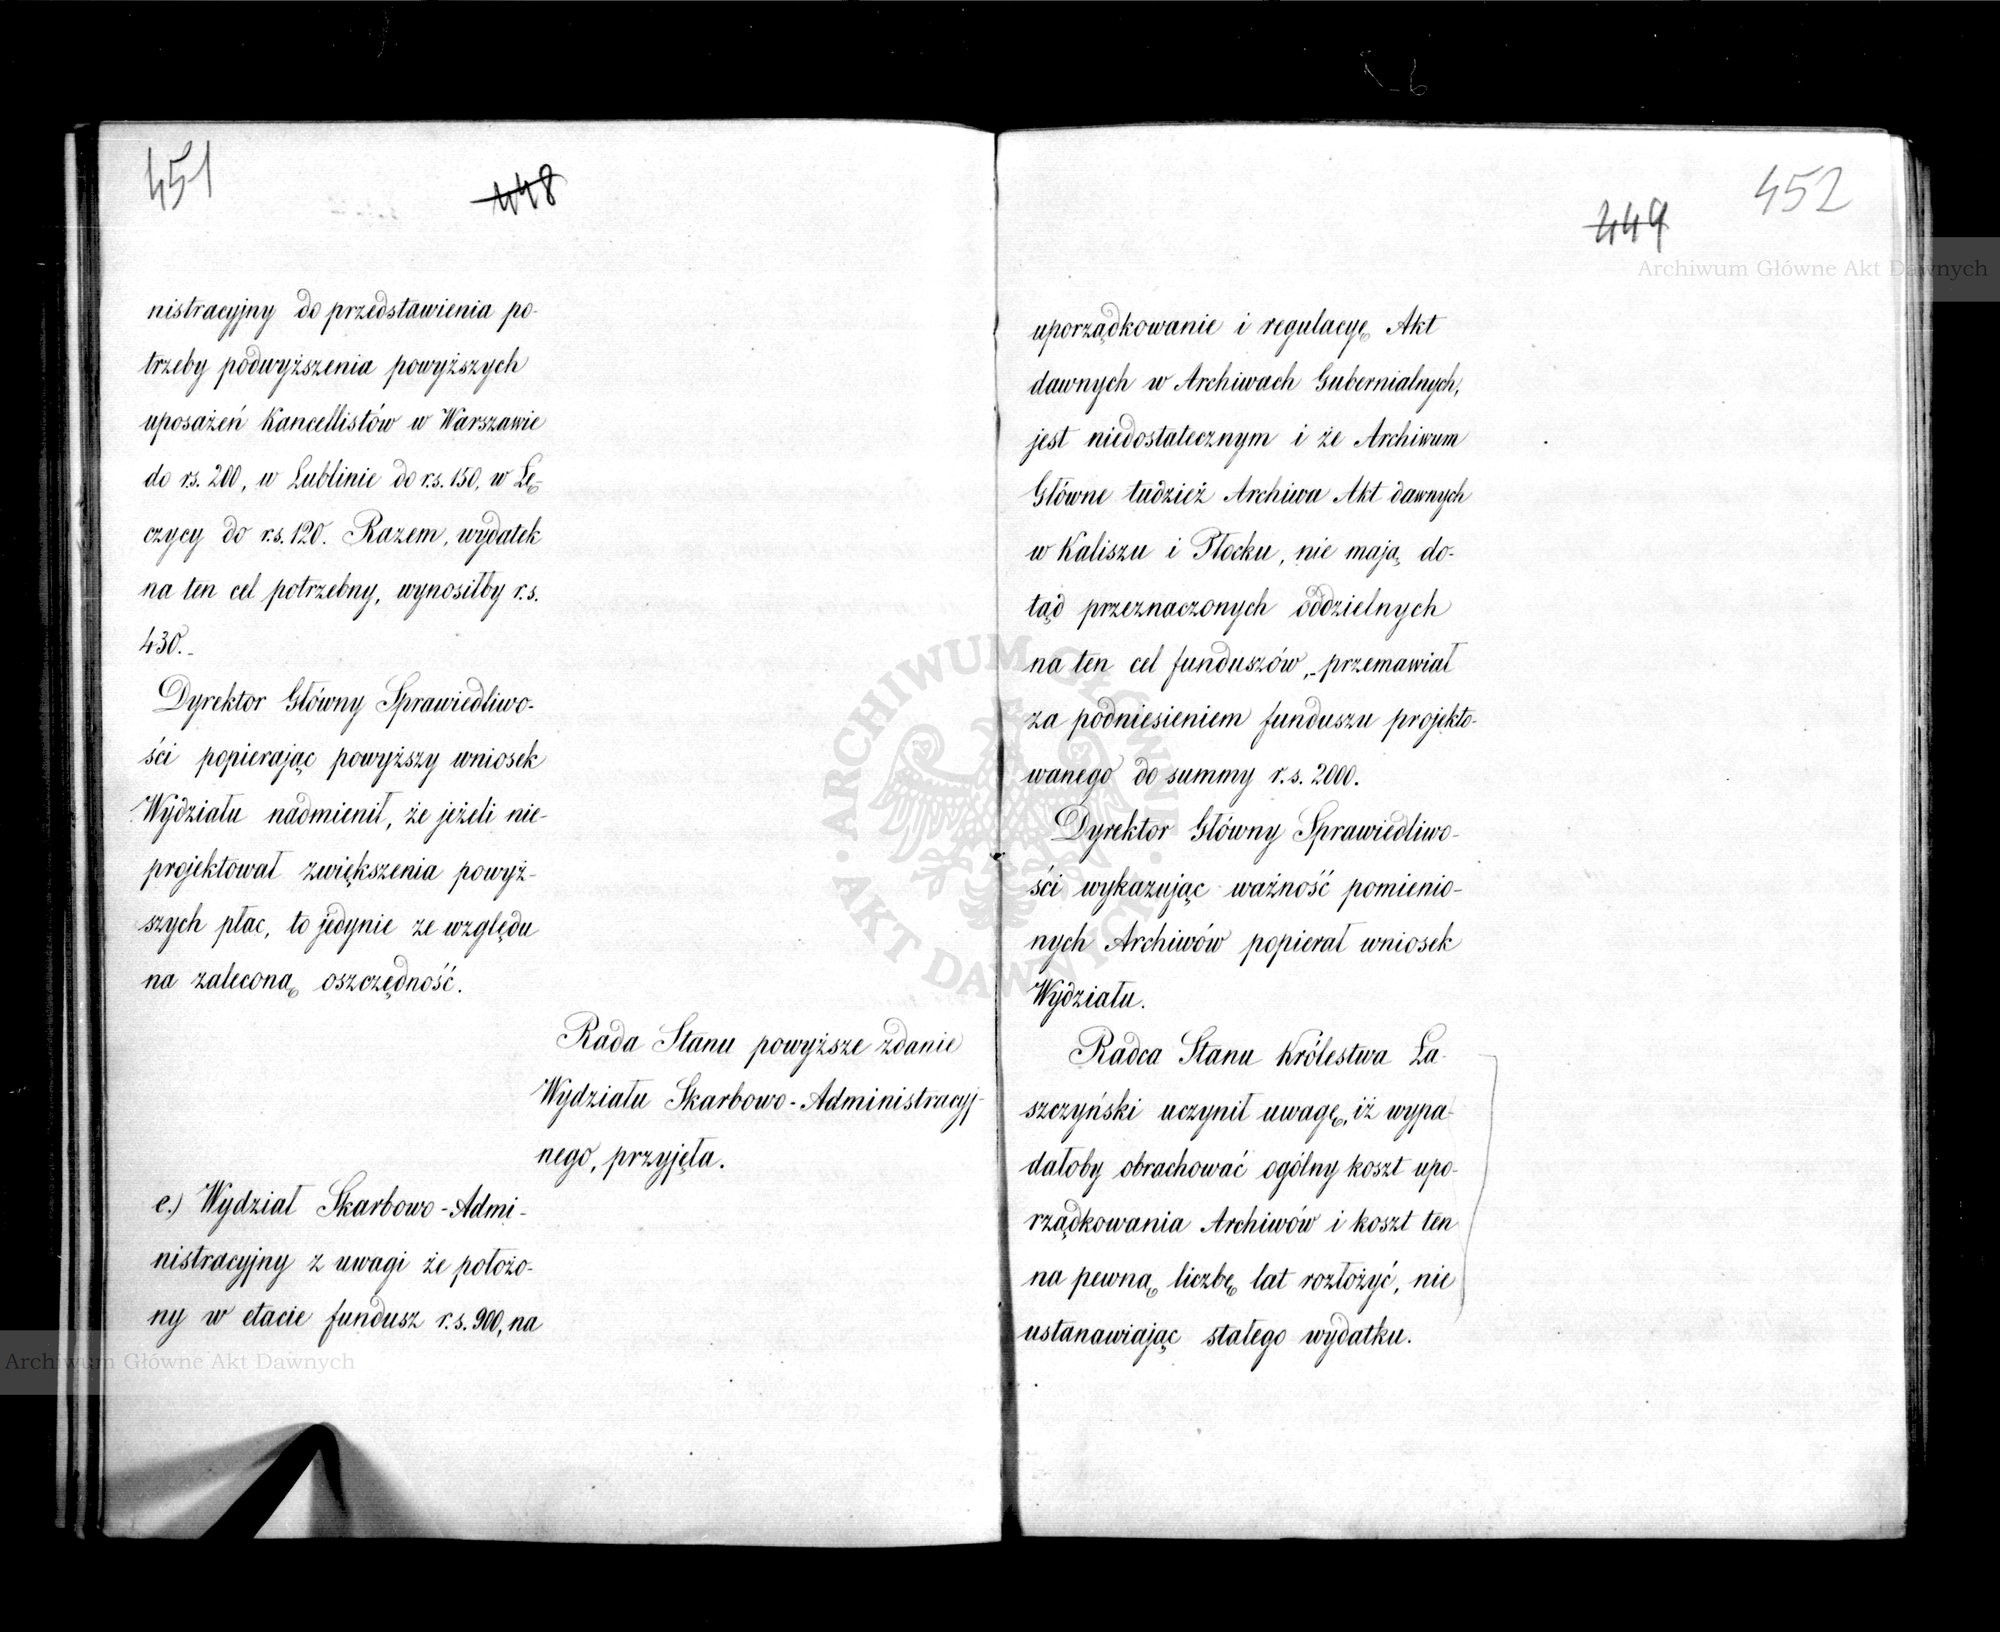 451
448
nistracyjny do przedstawienia po-
trzeby podwyższenia powyższych
uposażeń Kancellistów w Warszawie
do rs. 200, w Lublinie do r.s. 150, w Łę-
czycy do r.s. 120. Razem, wydatek
na ten cel potrzebny, wynosiłby r.s.
430.-
Dyrektor Główny Sprawiedliwo-
ści popierając powyższy wniosek
Wydziału nadmienił, że jeżeli nie-
projektował zwiększenia powyż-
szych płac, to jedynie ze względu
na zaleconą oszczędność.
Rada Stanu powyższe zdanie
Wydziału Skarbowo-Administracyj-
nego, przyjęła.
e.) Wydział Skarbowo-Admi-
nistracyjny z uwagi że położo-
ny w etacie fundusz r.s. 900, na
452
449
uporządkowanie i regulacyę Akt
dawnych w Archiwach Gubernialnych,
jest niedostatecznym i że Archiwum
Główne tudzież Archiwa Akt dawnych
w Kaliszu i Płocku, nie mają do-
tąd przeznaczonych oddzielnych
na ten cel funduszów,- przemawiał
za podniesieniem funduszu projekto-
wanego do summy r.s. 2000.
Dyrektor Główny Sprawiedliwo-
ści wykazując ważność pomienio-
nych Archiwów popierał wniosek
Wydziału.
Radca Stanu Królestwa Ła-
szczyński uczynił uwagę, iż wypa-
dałoby obrachować ogólny koszt upo-
rządkowania Archiwów i koszt ten
na pewną liczbę lat rozłożyć, nie
ustanawiając stałego wydatku.
Archiwum Główne Akt Dawnych
Archiwum Główne Akt Dawnych
ARCHIWUM GŁÓWNE · AKT DAWNYCH ·